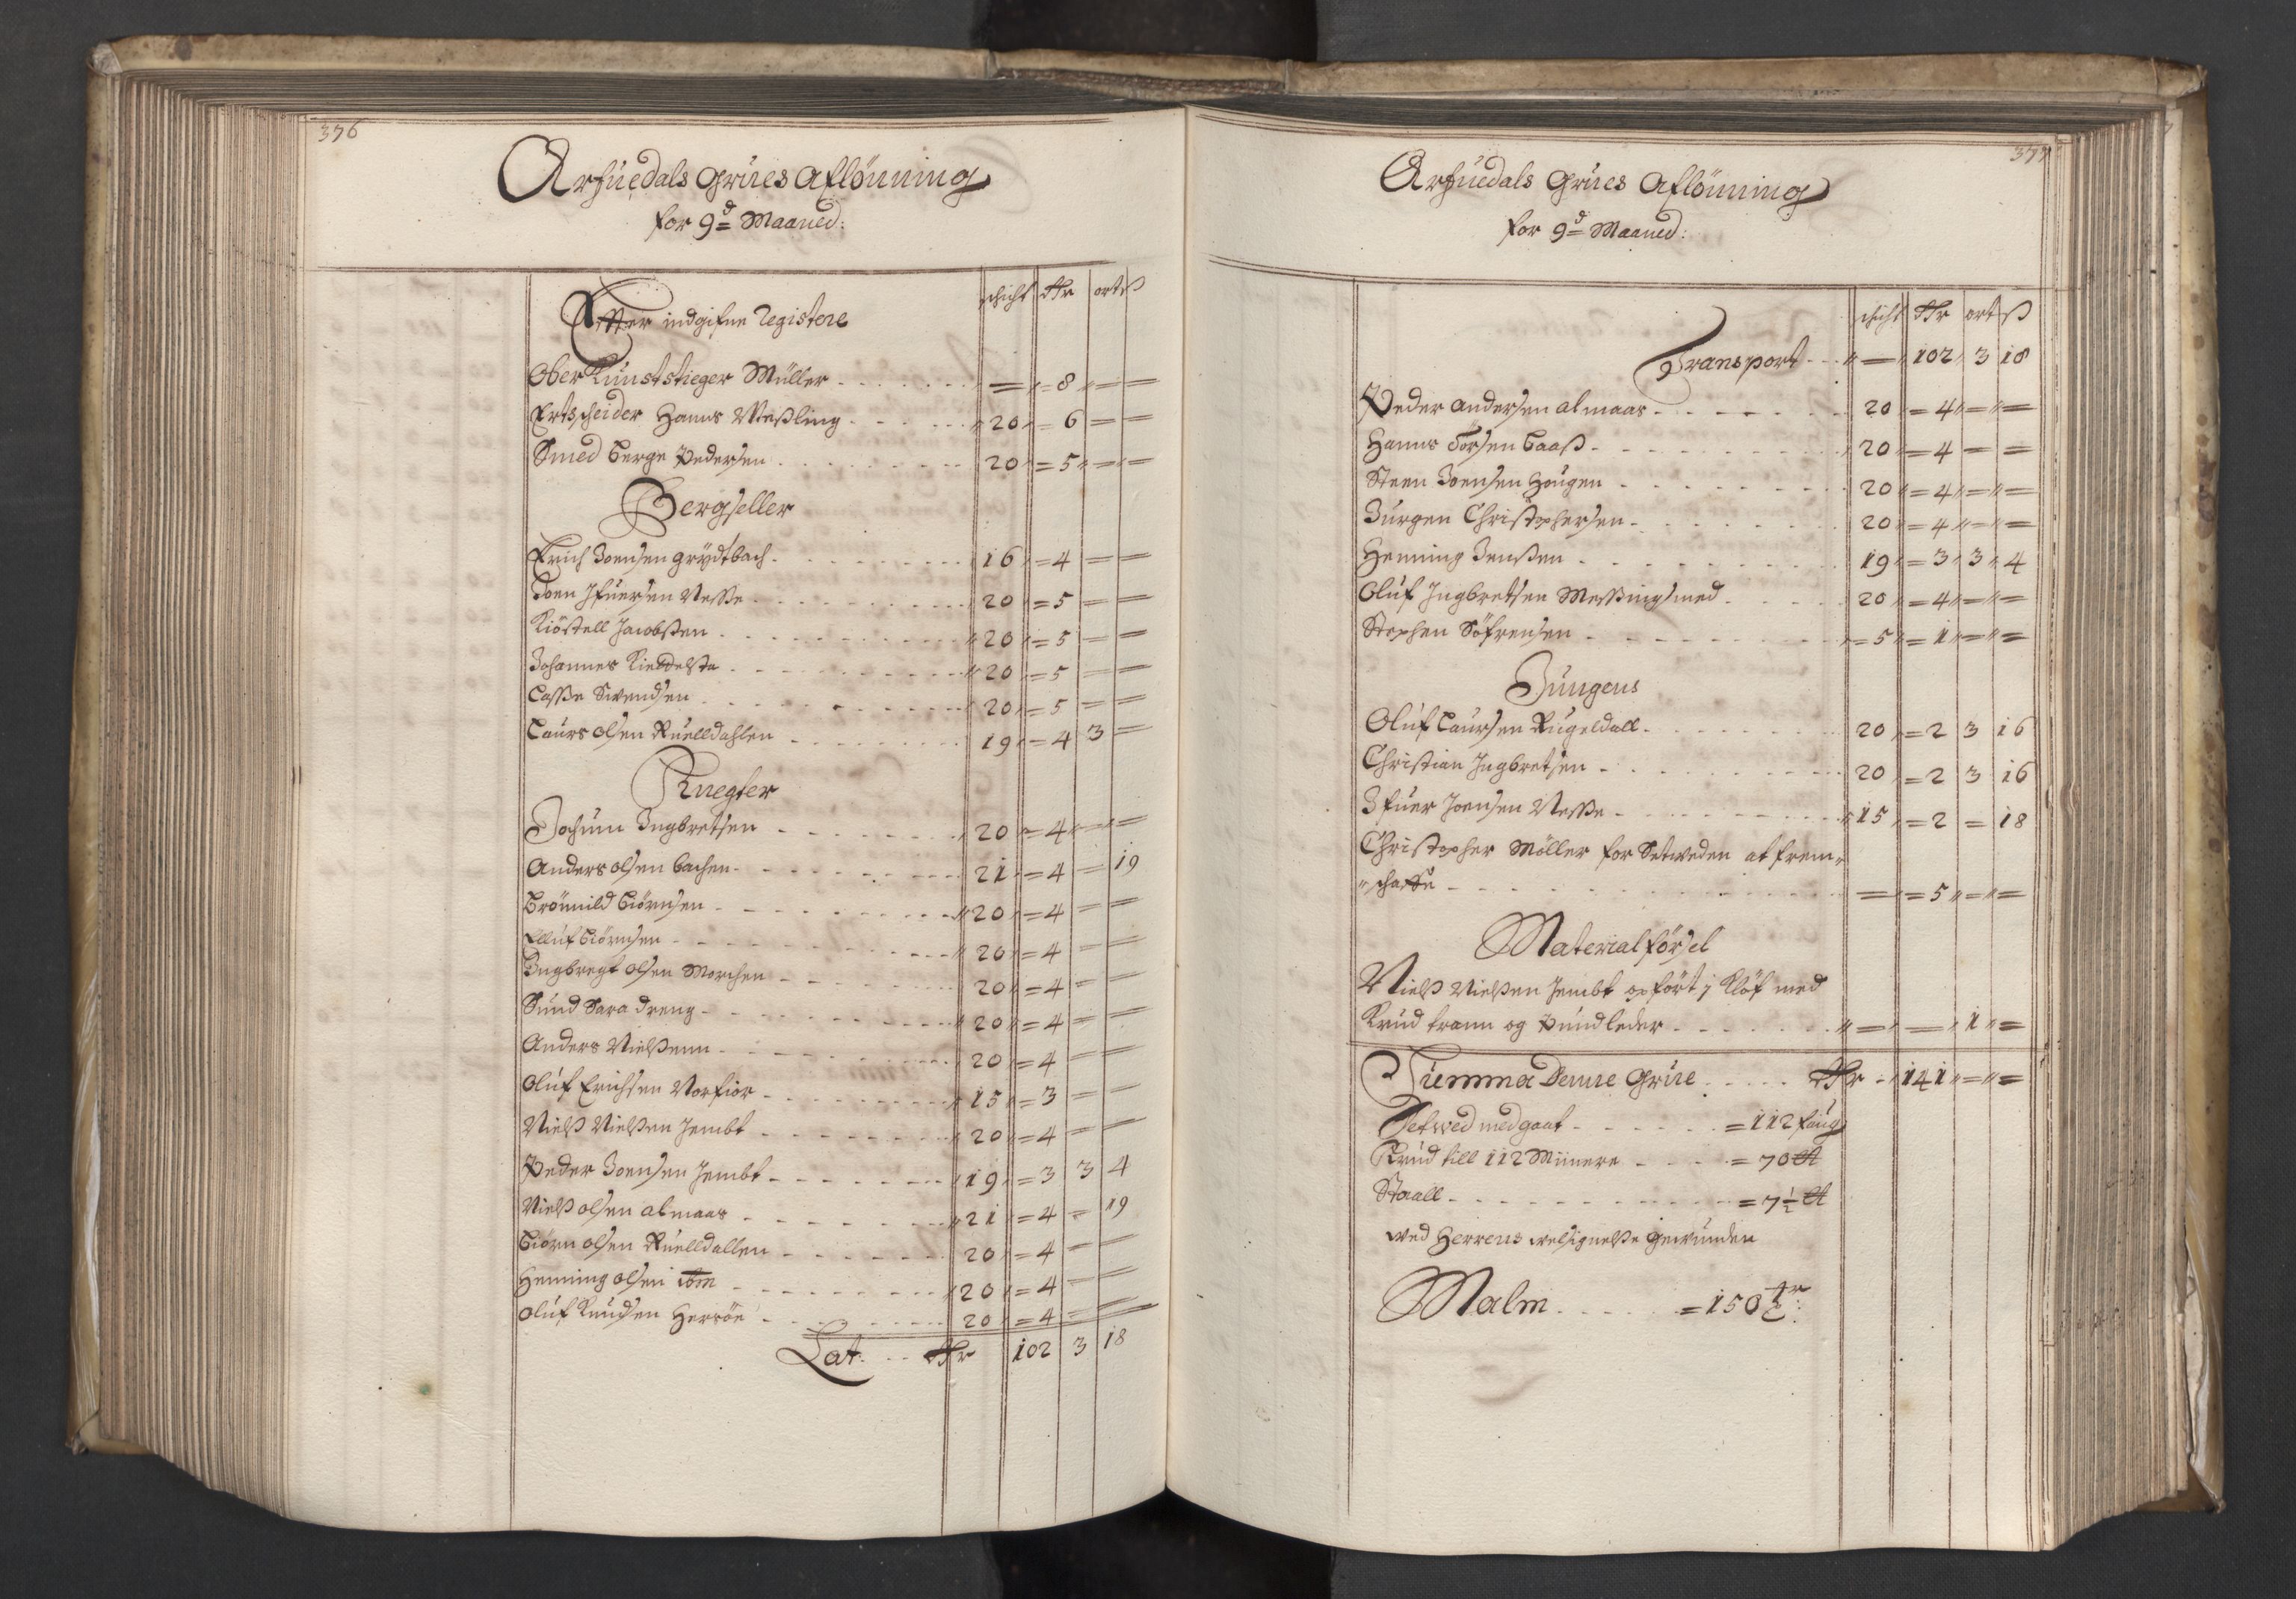 376
Arfuedals Grues Aflönning
for 9d Maaned:
schicht Rdr ort ß
Efter indgifne Registere
Ober Kunststieger Müller - - - — = 8 = =
Ertscheider Hanns Meßling - - - 20 = 6 = =
Smed Berge Pedersen - - - 20 = 5 = =
Bergseller
Erich Joensen Grydtbach - - - 16 = 4 = =
Joen Jfuersen Nesse - - - 20 = 5 = =
Kiöstell Jacobsen - - - 20 = 5 = =
Johannes Kieddelsta - - - 20 = 5 = =
Lasse Swendsen - - - 20 = 5 = =
Laurs Olsen Ruelldahlen - - - 19 = 4 3 =
Knegter
Jochum Ingbretsen - - - 20 = 4 = =
Anders Olsen Bachen - - - 21 = 4 = 19
Brönnild Biörnsen - - - 20 = 4 = =
Elluf Biörnsen - - - 20 = 4 = =
Ingbregt Olsen Morchen - - - 20 = 4 = =
Sund Sara Dreng - - - 20 = 4 = =
Anders Nielßenn - - - 20 = 4 = =
Oluf Erichsen Norfior - - - 15 = 3 = =
Nielß Nielßen Jembt - - - 20 = 4 = =
Peder Joensen Jembt - - - 19 = 3 3 4
Nielß Olsen Almaas - - - 21 = 4 = 19
Biörn Olsen Ruelldallen - - - 20 = 4 = =
Henning Olsen ibm - - - 20 = 4 = =
Oluf Knudsen Hersöe - - - 20 = 4 = =
Lat: - - Rdr 102 3 18
377
Arfuedals Grues Aflönning
for 9d Maaned:
schicht Rdr ort ß
Transport - - - — 102 3 18
Peder Andersen Almaas - - - 20 = 4 = =
Hanns Torsen Baaß - - - 20 = 4 = =
Steen Joensen Hougen - - - 20 = 4 = =
Jurgen Christophersen - - - 20 = 4 = =
Henning Jenßen - - - 19 = 3 3 4
Oluf Ingbretsen Messingsmed - - - 20 = 4 = =
Stephen Söfrensen - - - = 5 = 1 = =
Jungens
Oluf Laursen Rugeldall - - - 20 = 2 3 16
Christian Ingbretsen - - - 20 = 2 3 16
Jfuer Joensen Nesse - - - 15 = 2 = 18
Christopher Möller for Setweden at frem=
=schaffe - - - — = 5 = =
Material förSel
Nielß Nielßen Jembt opfört i Klöf med
Krud trann og Pundleder - - - — — 1 =
Summa Denne Grue - - - Rdr 141 = =
Setwed medgaat - - - = 112 faug
Krud till 112 Minere - - - = 70 ℔
Staall - - - = 7½ ℔
wed Herrens welsignelße Gewunden
Malm - - - = 150 tr: